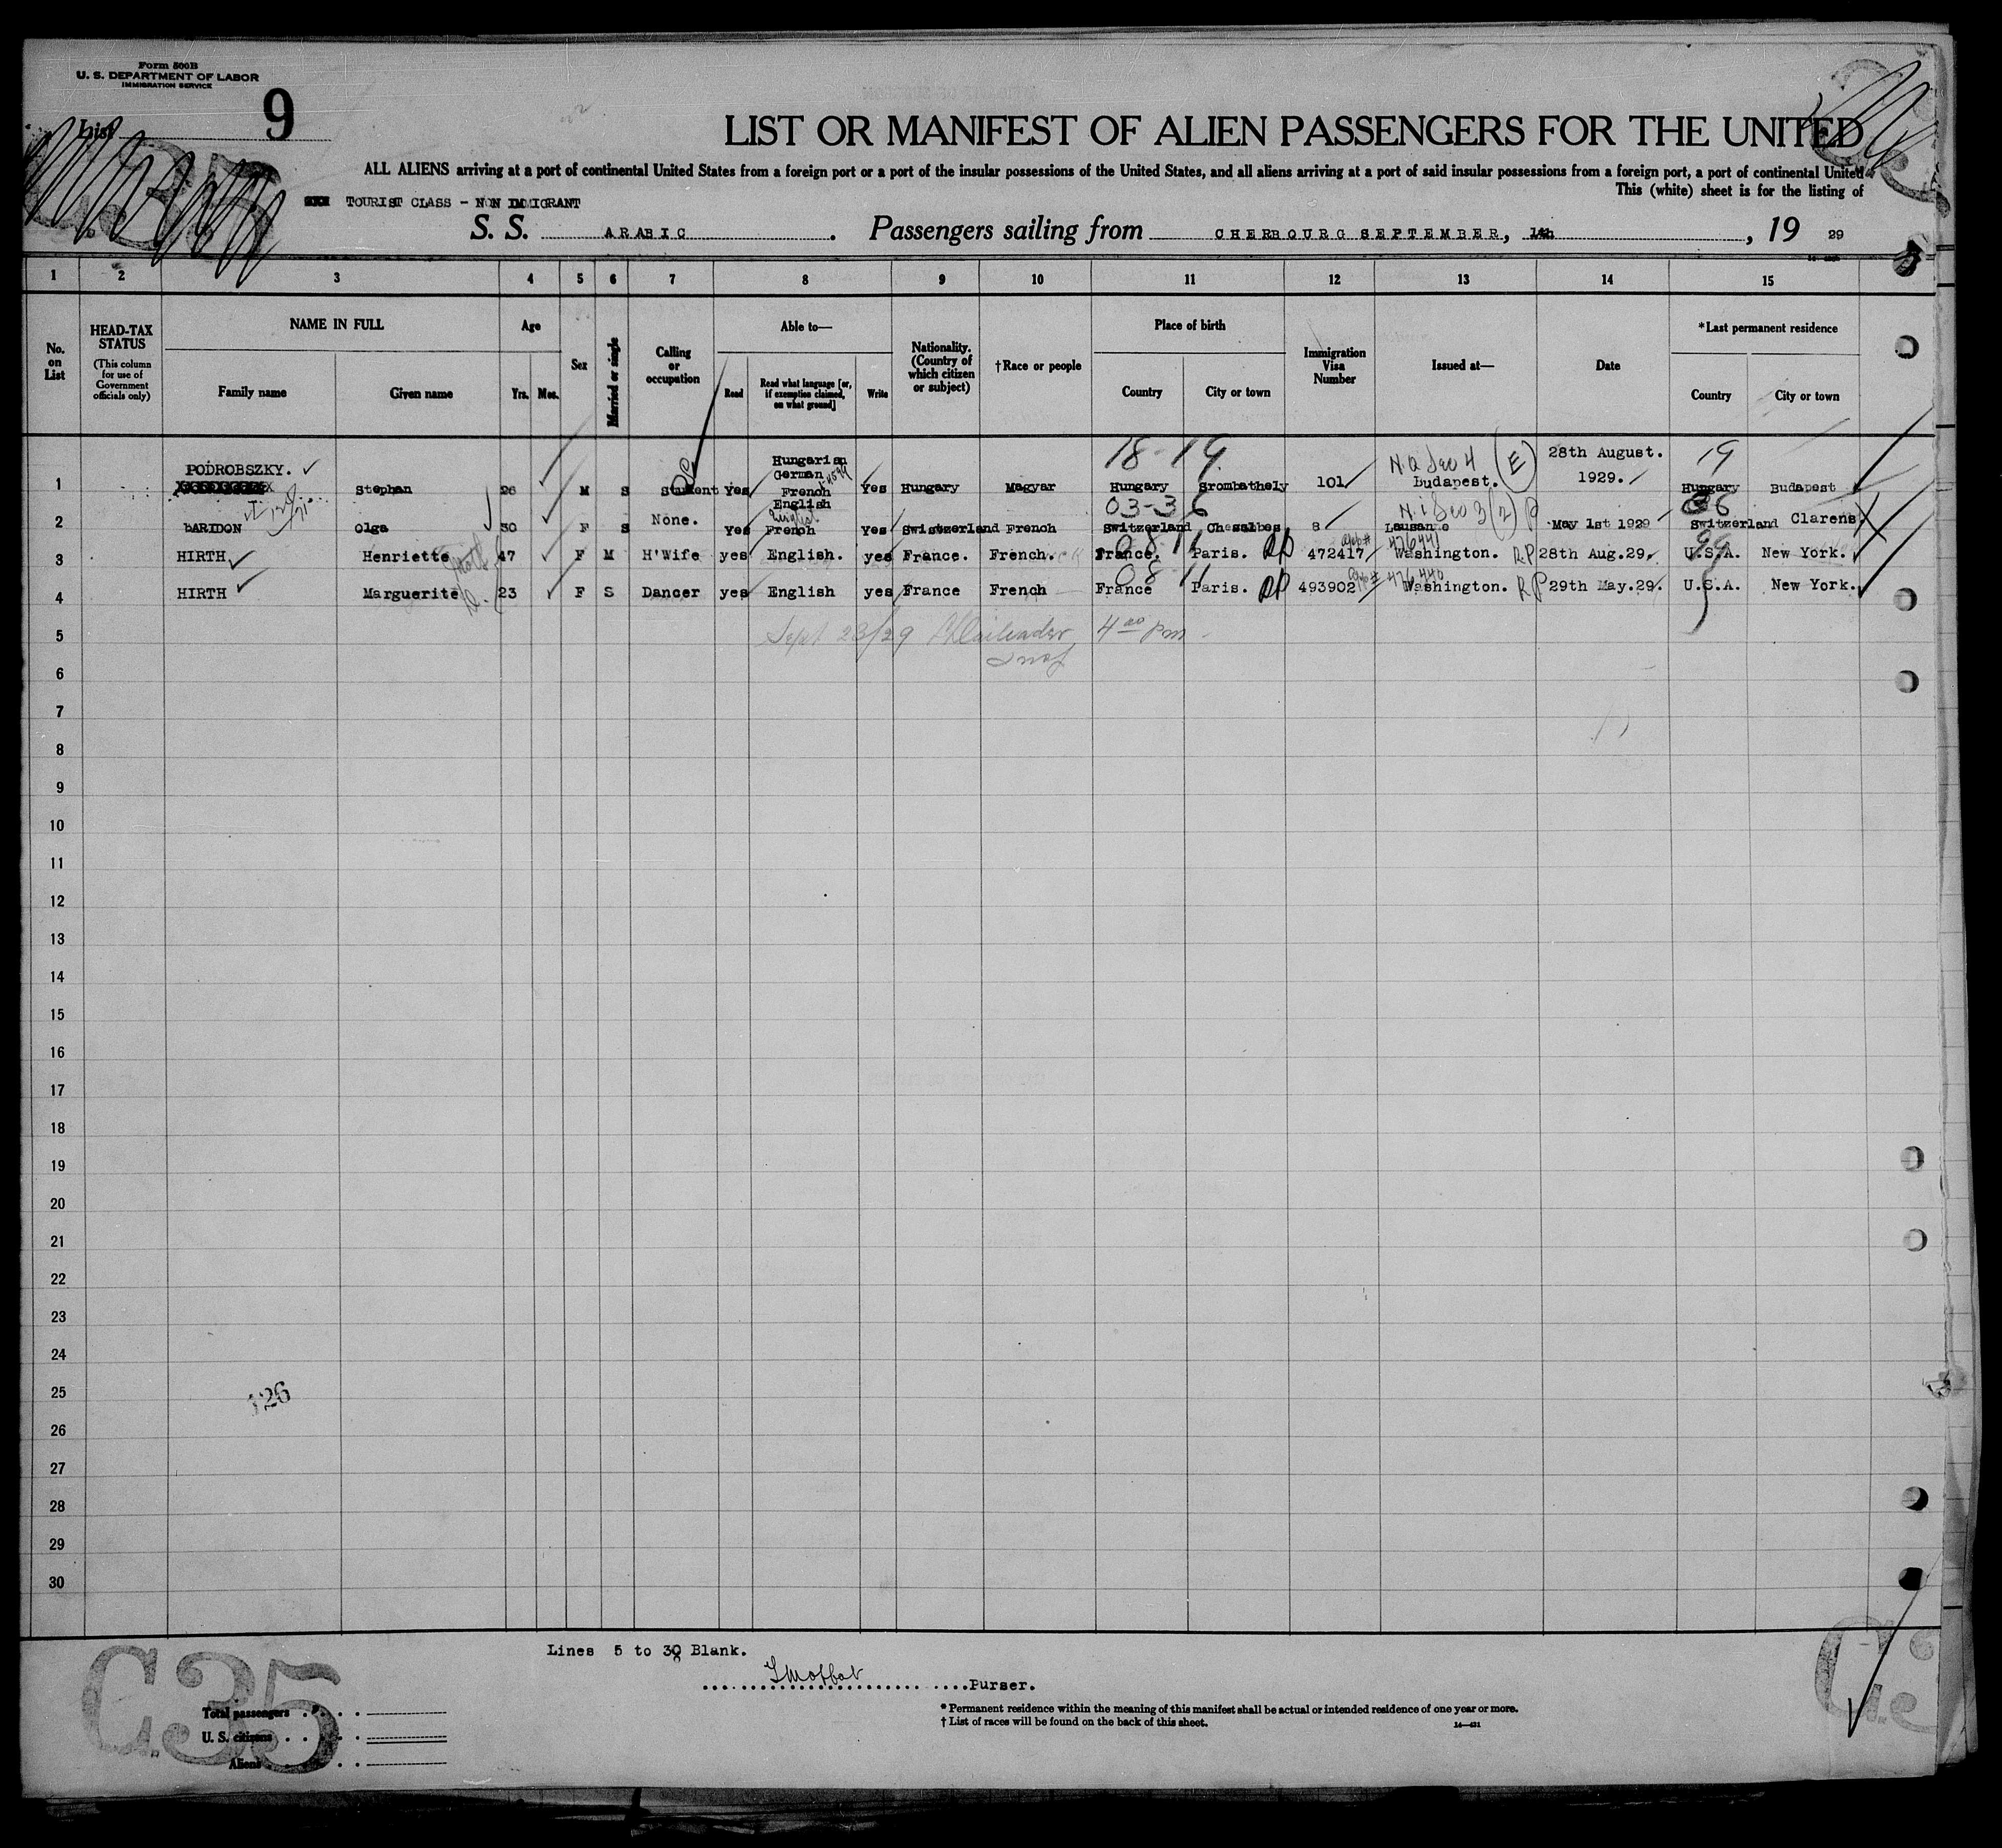 Form 500B
U. S. DEPARTMENT OF LABOR
IMMIGRATION SERVICE
List 9
LIST OR MANIFEST OF ALIEN PASSENGERS FOR THE UNITED
ALL ALIENS arriving at a port of continental United States from a foreign port or a port of the insular possessions of the United States, and all aliens arriving at a port of said insular possessions from a foreign port, a port of continental United
This (white) sheet is for the listing of
TOURIST CLASS - NON IMMIGRANT
S. S. ARABIC. Passengers sailing from CHERBOURG SEPTEMBER, 14th, 19 29
1 2 3 4 5 6 7 8 9 10 11 12 13 14 15
No. on List
HEAD-TAX STATUS
(This column for use of Government officials only)
NAME IN FULL
Family name Given name
Age
Yrs. Mos.
Sex
Married or single
Calling or occupation
Able to—
Read
Read what language [or, if exemption claimed, on what ground]
Write
Nationality. (Country of which citizen or subject)
†Race or people
Place of birth
Country City or town
Immigration Visa Number
Issued at—
Date
*Last permanent residence
Country City or town
1 PODROBSZKY. Stephan 26 M S Student Yes Hungarian German French English Yes Hungary Magyar 18-19 Hungary Srombathely 101 Budapest. (E) 28th August. 1929. 19 Hungary Budapest
2 BARIDON Olga 30 F S None. Yes English French Yes Switzerland French 03-36 Switzerland Chesalbes 8 Lausanne 3(2) May 1st 1929 36 Switzerland Clarens
3 HIRTH Henriette 47 F M H'Wife yes English. yes France. French. 08 11 France. Paris. RP 472417 476441 Washington. RP 28th Aug.29. 99 U.S.A. New York.
4 HIRTH Marguerite 23 F S Dancer yes English yes France French 08 11 France Paris. RP 493902 476440 Washington. RP 29th May.29. U.S.A. New York.
5 Sept 23/29 4 00 pm
6
7
8
9
10
11
12
13
14
15
16
17
18
19
20
21
22
23
24
25
126
26
27
28
29
30
Lines 5 to 30 Blank.
Purser.
C35
Total passengers
U. S. citizens
Aliens
* Permanent residence within the meaning of this manifest shall be actual or intended residence of one year or more.
† List of races will be found on the back of this sheet.
14—421